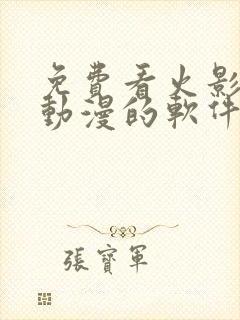 免費看火影
動漫的軟件
張寶軍